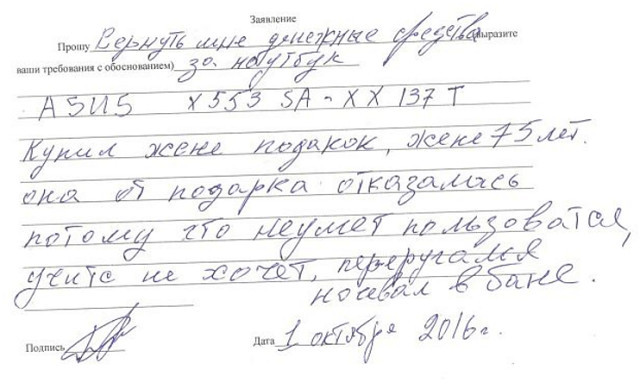 Заявление
Прошу Вернуть мне денежные средства (выразите
ваши требования с обоснованием) за ноутбук
ASUS X553 SA-XX137T
Купил жене подакок, жене 75 лет.
она от подарка отказалась
потому что неумет пользоватся,
учитс не хочет, переругался
ночевал в бане.
Подпись Дата 1 октября 2016 г.